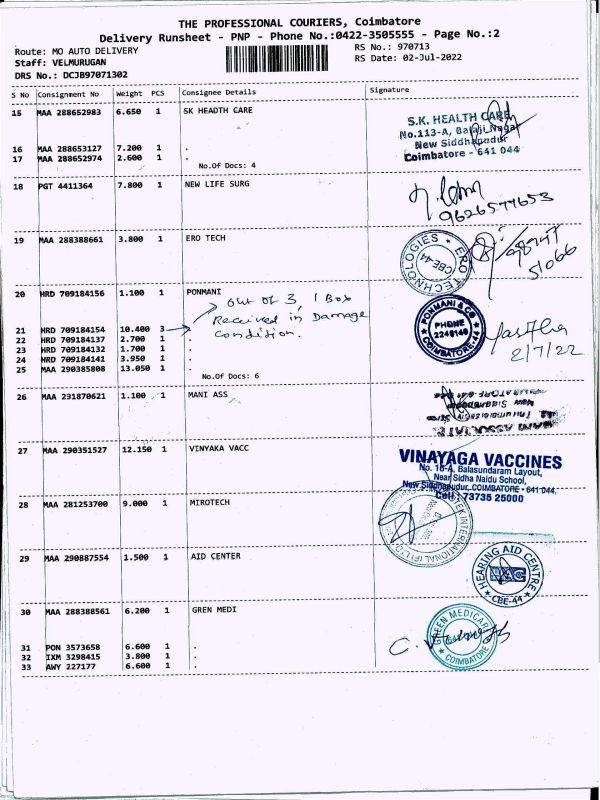 THE PROFESSIONAL COURIERS, Coimbatore
Delivery Runsheet - PNP - Phone No.:0422-3505555 - Page No.:2
Route: MO AUTO DELIVERY
RS No.: 970713
Staff: VELMURUGAN
RS Date: 02-Jul-2022
DRS No.: DCJB97071302
S No Consignment No Weight PCS Consignee Details Signature
15 MAA 288652983 6.650 1 SK HEADTH CARE
S.K. HEALTH CARE
No.113-A, Balaji Nagar
New Siddhapudur
Coimbatore - 641 044
16 MAA 288653127 7.200 1 .
17 MAA 288652974 2.600 1 .
No.Of Docs: 4
18 PGT 4411364 7.800 1 NEW LIFE SURG
9626577653
19 MAA 288388661 3.800 1 ERO TECH
ERO TECHNOLOGIES
CBE-44
51066
20 HRD 709184156 1.100 1 PONMANI
out of 3, 1 Box
Received in Damage
condition.
PONMANI & CO
PHONE
2248140
COIMBATORE-44
2/7/22
21 HRD 709184154 10.400 3 .
22 HRD 709184137 2.700 1 .
23 HRD 709184132 1.700 1 .
24 HRD 709184141 3.950 1 .
25 MAA 290385808 13.050 1 .
No.Of Docs: 6
26 MAA 291870621 1.100 1 MANI ASS
MANI ASSOCIATE
27 MAA 290351527 12.150 1 VINYAKA VACC
VINAYAGA VACCINES
No. 16-A, Balasundaram Layout,
Near Sidha Naidu School,
New Siddhapudur, COIMBATORE - 641 044.
Cell : 73735 25000
28 MAA 281253700 9.000 1 MIROTECH
29 MAA 290887554 1.500 1 AID CENTER
HEARING AID CENTRE
HAC
CBE-44
30 MAA 288388561 6.200 1 GREN MEDI
GREEN MEDICARE
COIMBATORE
31 PON 3573658 6.600 1 .
32 IXM 3298415 3.800 1 .
33 AWY 227177 6.600 1 .